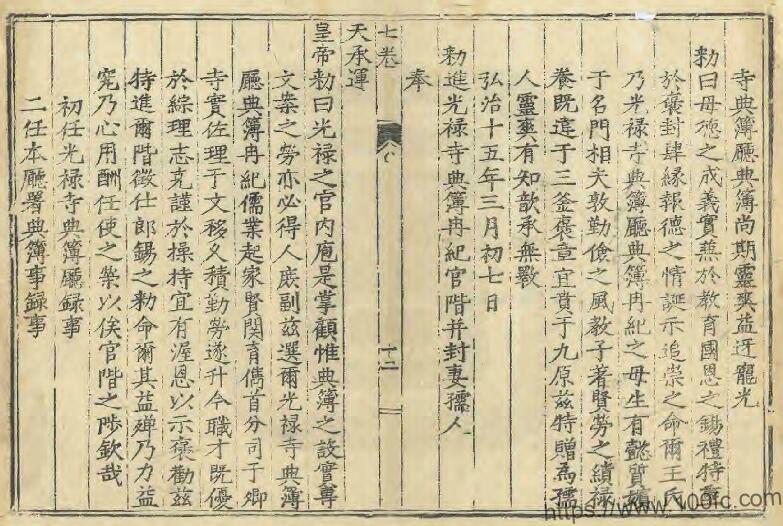 寺典簿廳典簿尚期靈爽益迓寵光
勑曰母德之成義實兼於教育國恩之錫禮特
於褒封肆緣報德之情誕示追崇之命爾王氏
乃光禄寺典簿廳典簿冉紀之母生有懿質
于名門相夫敦勤儉之風教子著賢勞之績禄
養既違于三釜褒章宜賁于九原兹特贈為孺
人靈爽有知歆承無斁
弘治十五年三月初七日
勑進光禄寺典簿冉紀官階并封妻孺人
奉
七卷
十二
天承運
皇帝勑曰光禄之官内庖是掌顧惟典簿之設實專
文案之勞亦必得人庶副兹選爾光禄寺典簿
廳典簿冉紀儒業起家賢関育儁首分司于卿
寺實佐理于文移久積勤勞遂升今職才既優
於綜理志克謹於操持宜有渥恩以示褒勸兹
特進爾階徵仕郎錫之勑命爾其益殫乃力益
究乃心用酬任使之榮以俟官階之陟欽哉
初任光禄寺典簿廳録事
二任本廳署典簿事録事
https://www.v00fc.com